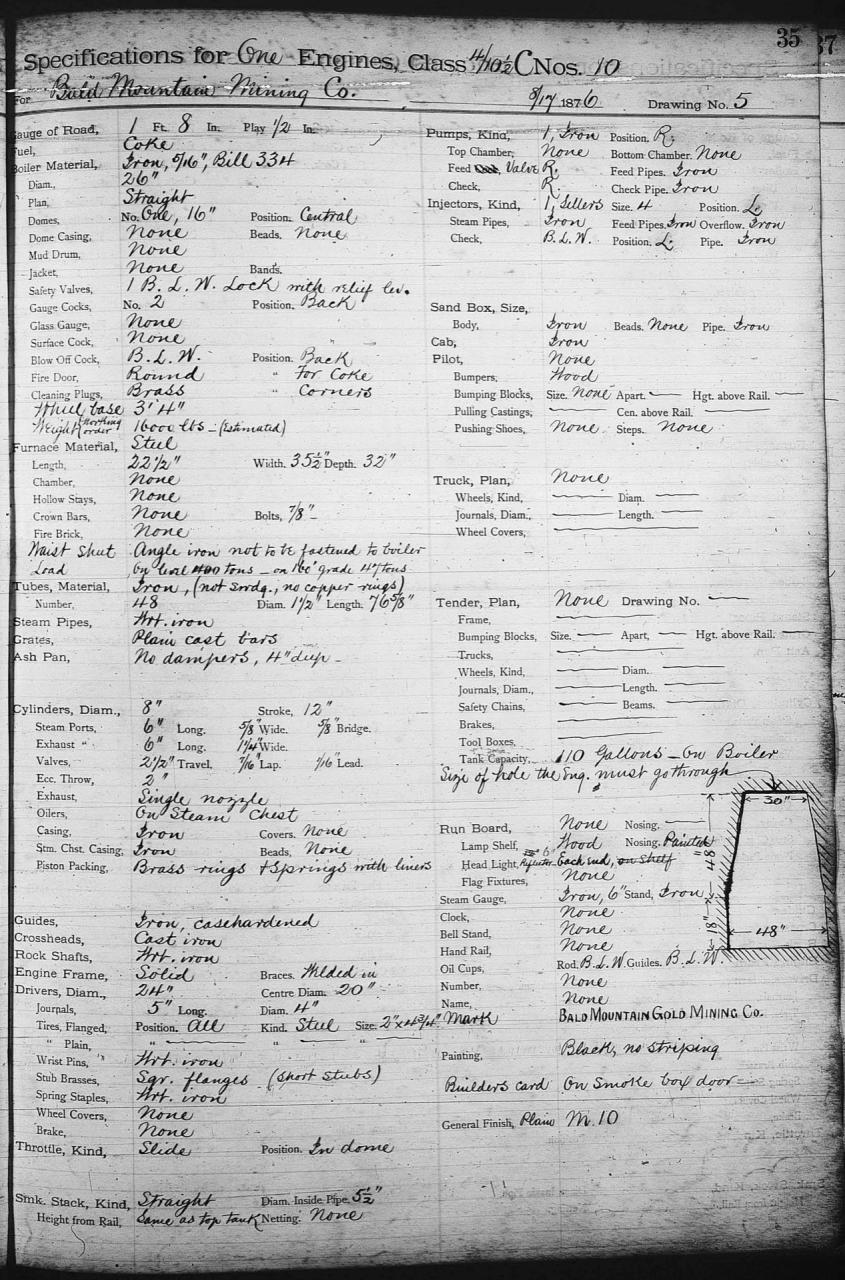 35
37
Specifications for One Engines, Class 4/10½ C Nos. 10
For Bald Mountain Mining Co. 8/17 1876 Drawing No. 5
Gauge of Road, 1 Ft. 8 In. Play ½ In.
Fuel, Coke
Boiler Material, Iron, 5/16", Bill 334
Diam., 26"
Plan, Straight
Domes, No. One, 16" Position. Central
Dome Casing, None Beads. None
Mud Drum, None
Jacket, None Bands.
Safety Valves, 1 B. L. W. Lock with relief lev.
Gauge Cocks, No. 2 Position. Back
Glass Gauge, None
Surface Cock, None
Blow Off Cock, B. L. W. Position. Back
Fire Door, Round " For Coke
Cleaning Plugs, Brass " Corners
Wheel base 3' 4"
Weight (Working order) 16000 lbs - (Estimated)
Furnace Material, Steel
Length, 22½" Width. 35½" Depth. 32"
Chamber, None
Hollow Stays, None
Crown Bars, None Bolts, 7/8" -
Fire Brick, None
Waist Sheet Angle iron not to be fastened to boiler
Load on level 400 tons - on 100' grade 47 tons
Tubes, Material, Iron, (not Swdg., no copper rings)
Number, 48 Diam. 1½" Length. 76 5/8"
Steam Pipes, Wrt. iron
Grates, Plain cast bars
Ash Pan, No dampers, 4" deep -
Cylinders, Diam., 8" Stroke, 12"
Steam Ports, 6" Long. 5/8" Wide. 5/8" Bridge.
Exhaust " 6" Long. 1¼" Wide.
Valves, 2½" Travel, 7/16" Lap. 1/16 Lead.
Ecc. Throw, 2"
Exhaust, Single nozzle
Oilers, On Steam Chest
Casing, Iron Covers. None
Stm. Chst. Casing, Iron Beads, None
Piston Packing, Brass rings + Springs with liners
Guides, Iron, casehardened
Crossheads, Cast iron
Rock Shafts, Wrt. iron
Engine Frame, Solid Braces. Welded in
Drivers, Diam., 24" Centre Diam. 20"
Journals, 5" Long. Diam. 4"
Tires, Flanged, Position. All Kind. Steel Size. 2" x 4¾"
" Plain, " " "
Wrist Pins, Wrt. iron
Stub Brasses, Sqr. flanges (short stubs)
Spring Staples, Wrt. iron
Wheel Covers, None
Brake, None
Throttle, Kind, Slide Position. In dome
Smk. Stack, Kind, Straight Diam. Inside Pipe. 5½"
Height from Rail, Same as top tank Netting. None
Pumps, Kind, 1, Iron Position. R.
Top Chamber, None Bottom Chamber. None
Feed Cock, Valve R. Feed Pipes. Iron
Check, R. Check Pipe. Iron
Injectors, Kind, 1, Sellers Size. 4 Position. L.
Steam Pipes, Iron Feed Pipes. Iron Overflow. Iron
Check, B. L. W. Position. L. Pipe. Iron
Sand Box, Size,
Body, Iron Beads. None Pipe. Iron
Cab, Iron
Pilot, None
Bumpers, Wood
Bumping Blocks, Size. None Apart. Hgt. above Rail.
Pulling Castings, Cen. above Rail.
Pushing Shoes, None Steps. None
Truck, Plan, None
Wheels, Kind, Diam.
Journals, Diam., Length.
Wheel Covers,
Tender, Plan, None Drawing No.
Frame,
Bumping Blocks, Size. Apart, Hgt. above Rail.
Trucks,
Wheels, Kind, Diam.
Journals, Diam., Length.
Safety Chains, Beams.
Brakes,
Tool Boxes,
Tank Capacity, 110 Gallons - On Boiler
Size of hole the Eng. must go through
30"
48"
18"
48"
Run Board, None Nosing.
Lamp Shelf, Wood Nosing. Painted
Head Light, Reflector 6" Each end, on shelf
Flag Fixtures, None
Steam Gauge, Iron, 6" Stand, Iron
Clock, None
Bell Stand, None
Hand Rail, None
Oil Cups, Rod. B. L. W. Guides. B. L. W.
Number, None
Name, None
Mark BALD MOUNTAIN GOLD MINING CO.
Painting, Black, no striping
Builders card On Smoke box door
General Finish, Plain M. 10